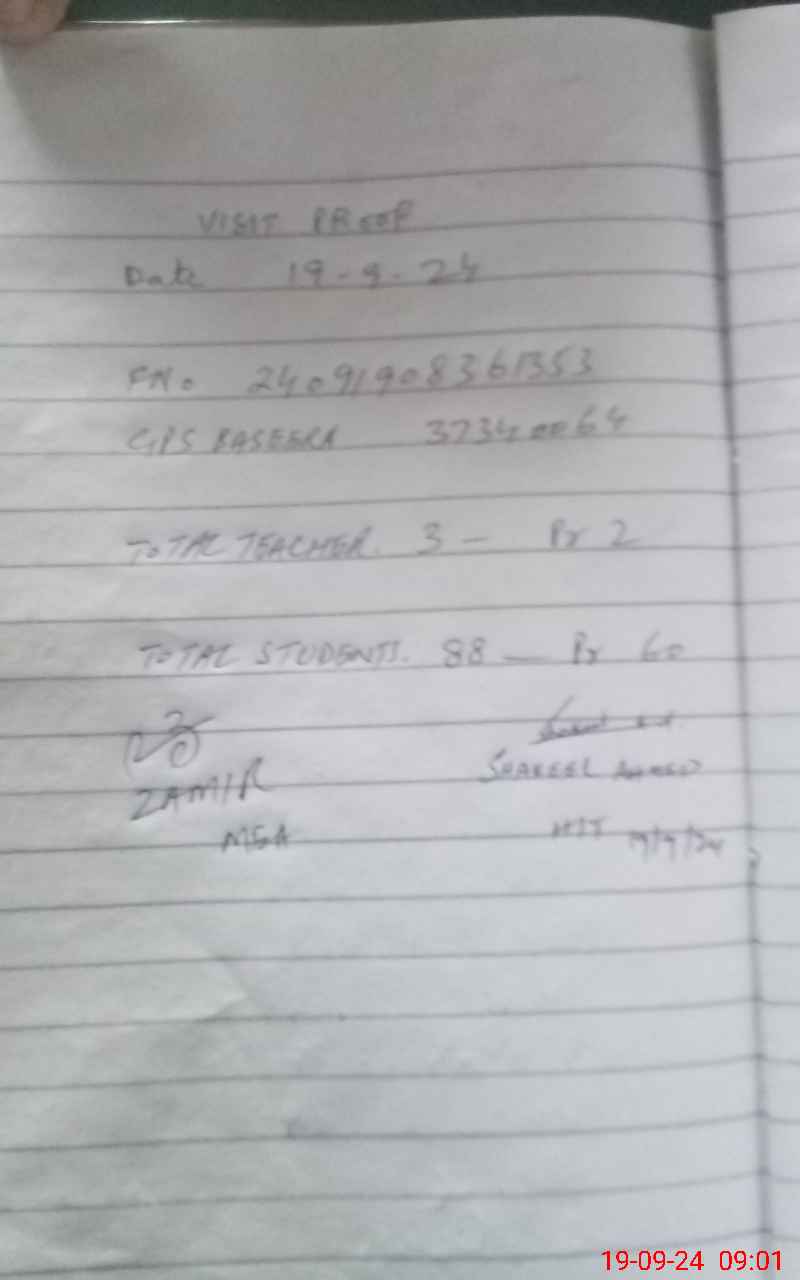 VISIT PROOF
Date 19-9-24
FNo 24091908361353
GPS BASEERA 37340064
TOTAL TEACHER. 3 - Pr 2
TOTAL STUDENTS. 88 - Pr 60
ZAMIR SHAKEEL AHMED
MEA HIT 19/9/24
19-09-24 09:01